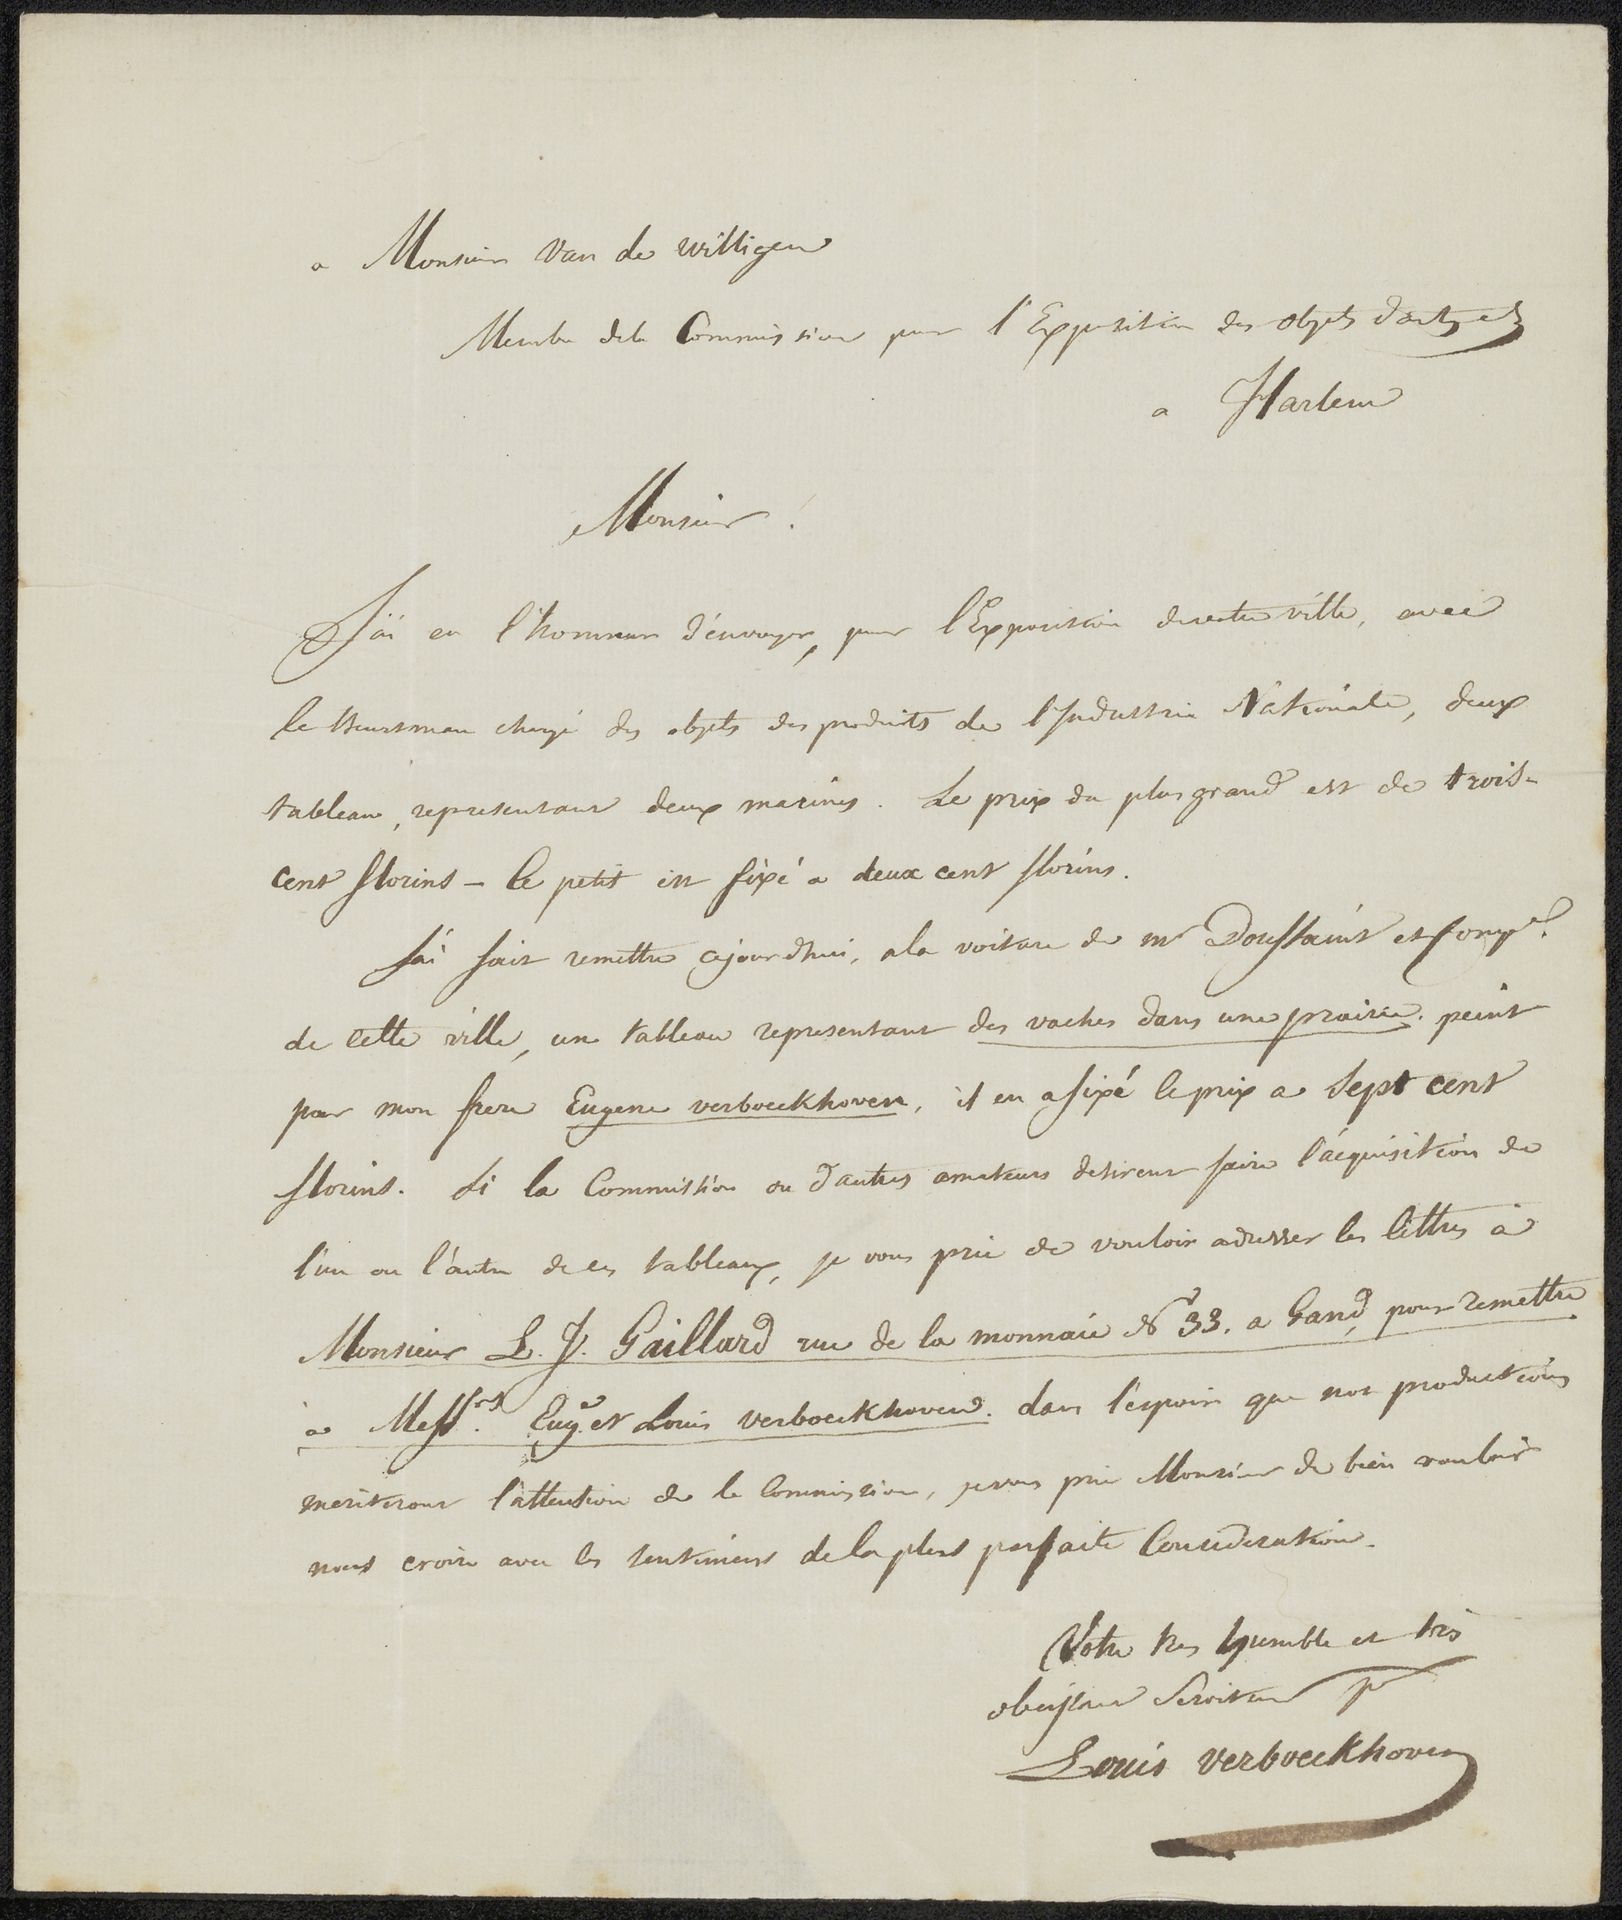 a Monsieur Van de Willigen
Membre de la Commission pour l'Exposition des objets d'arts et
a Harlem
Monsieur !
J'ai eu l'honneur d'énvoyer, pour l'Exposition de votre ville, avec
le Beurtman chargé des objets des produits de l'Industrie Nationale, deux
tableau, representant deux marines. Le prix du plus grand est de trois-
cent florins – le petit est fixé a deux cent florins.
J'ai fait remettre ajourdhui, a la voiture de mr Doussaint et Compe.
de cette ville, un tableau representant des vaches dans une prairie. peint
par mon frere Eugene verboeckhoven, il en a fixé le prix a Sept cent
florins. Si la Commission ou d'autres amateurs desirent faire l'acquisition de
l'un ou l'autre de ces tableaux, je vous prie de vouloir adresser les lettres à
Monsieur L. J. Gaillard rue de la monnaie No 33. a Gand, pour remettre
à Messrs. Eug. et Louis verboeckhoven. dans l'éspoir que nos productions
meriteront l'attention de la Commission, je vous prie Monsieur de bien vouloir
nous croire avec les sentimens de la plus parfaite Consideration.
Votre tres humble et très
obeissant Serviteur
Louis verboeckhoven